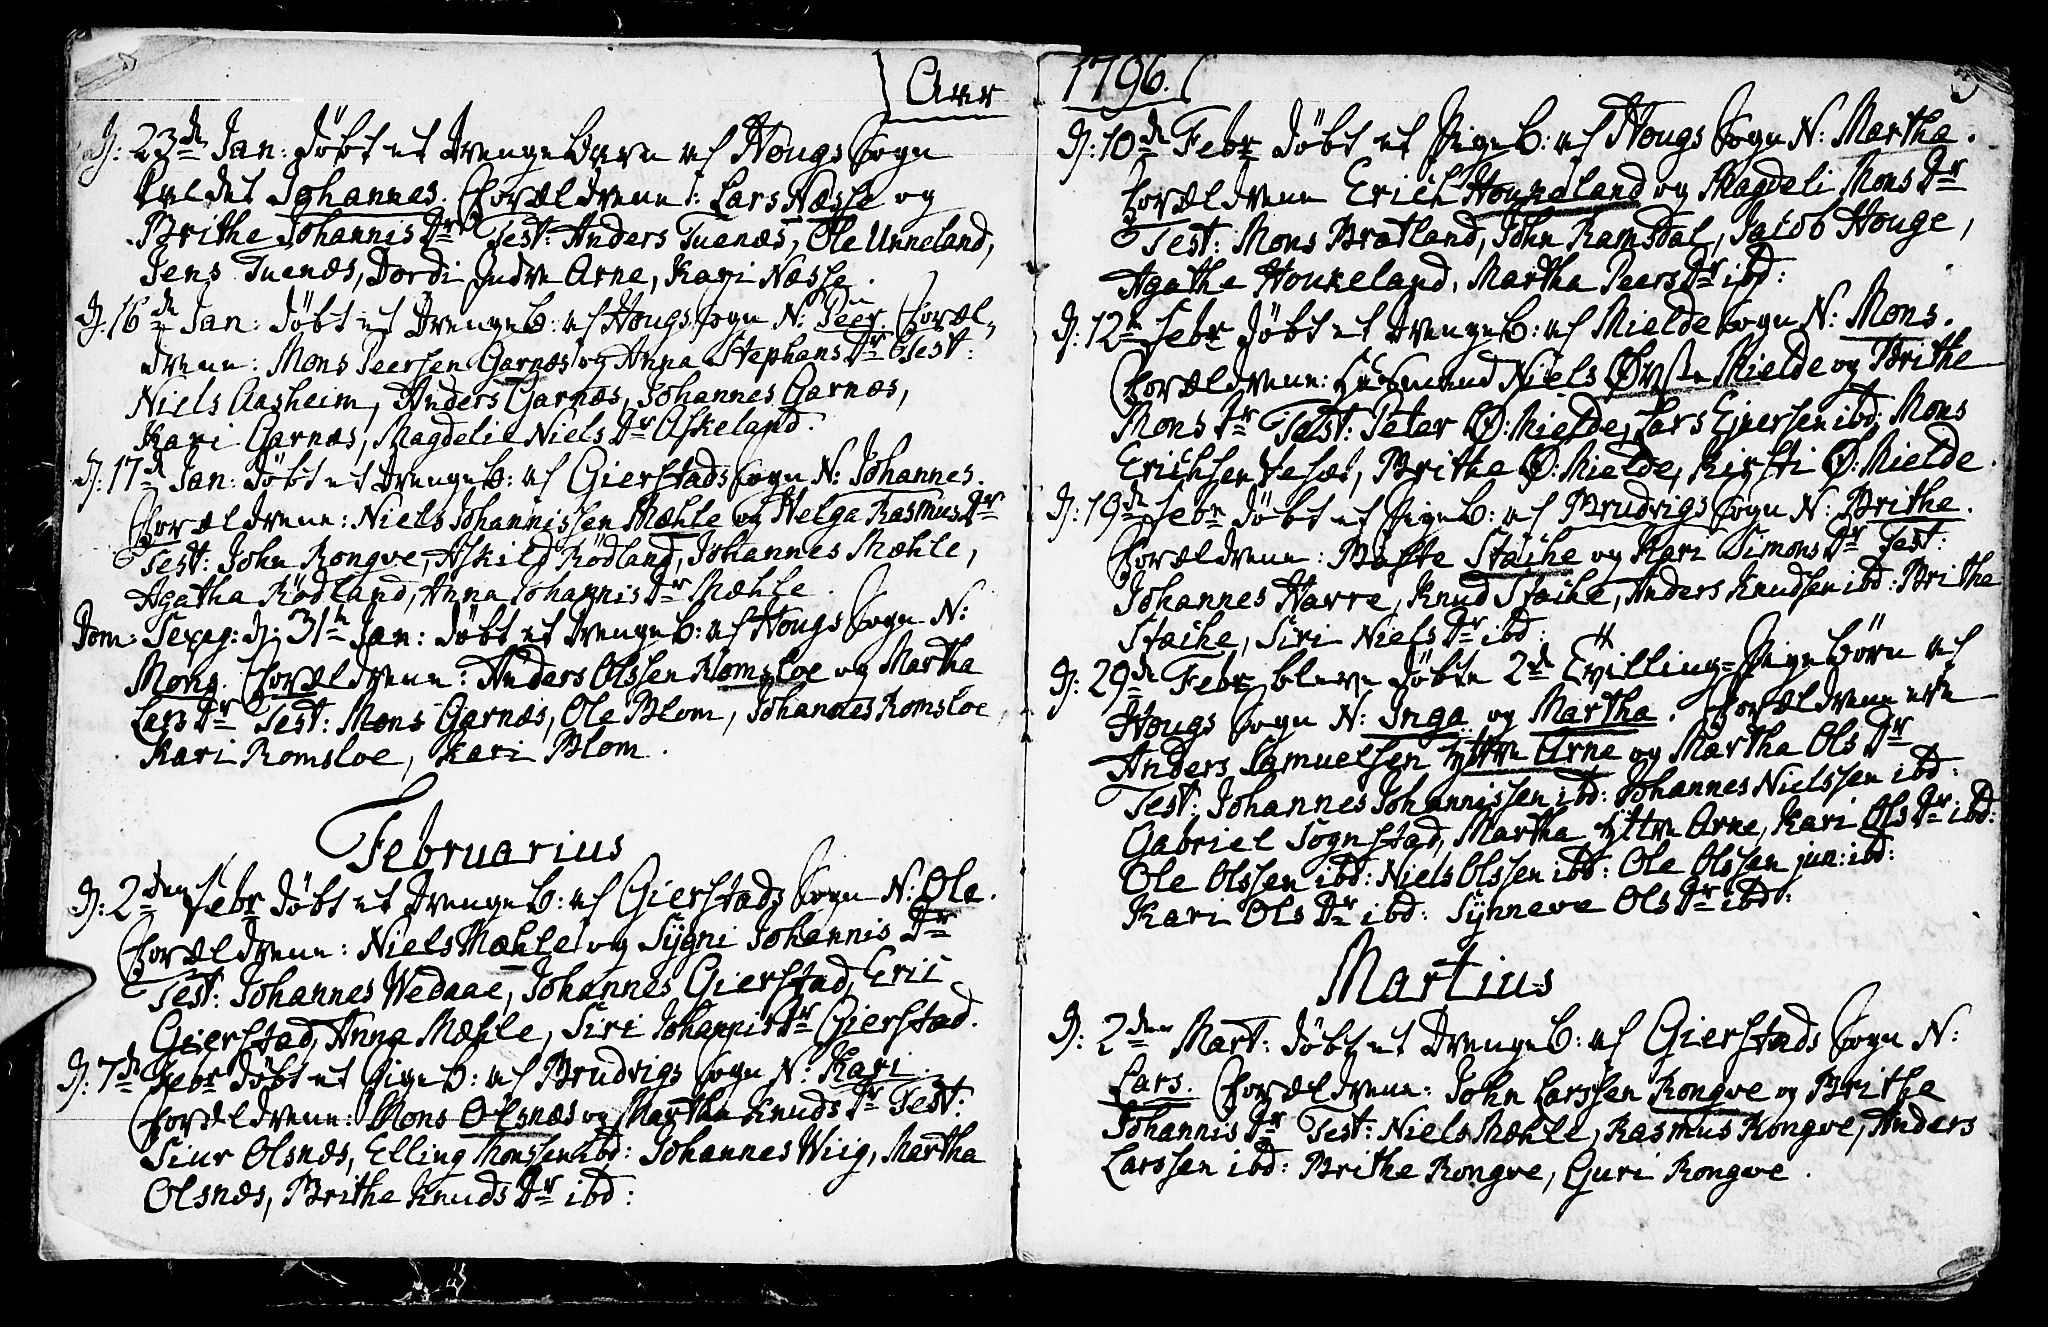 Aar
D: 23de Jan: døbt et Drengebarn af Hougs Sogn
kaldet Johannes. Forældrene: Lars Næsse og
Brithe Johannis Dr Test: Anders Tuenæs, Ole Unneland,
Jens Tuenæs, Dordi Indre Arne, Kari Næsse.
D: 16de Jan: døbt et Drengeb: af Hougs Sogn N: Peer Foræl-
drene: Mons Peersen Garnæs og Anna Stephans Dr Test:
Niels Aasheim, Anders Garnæs, Johannes Garnæs,
Kari Garnæs, Magdeli Niels Dr Askeland.
D: 17de Jan: døbt et Drengeb: af Gierstads Sogn N: Johannes.
Forældrene: Niels Johannissen Mæhle og Helga Rasmus Dr
Test: John Rongve, Askild Rødland, Johannes Mæhle,
Agatha Rødland, Anna Johannis Dr Mæhle.
Dom: Sexag: D: 31te Jan: døbt et Drengeb: af Hougs Sogn N:
Mons. Forældrene: Anders Olssen Romsloe og Martha
Lars Dr Test: Mons Garnæs, Ole Blom, Johannes Romsloe,
Kari Romsloe, Kari Blom.
Februarius
D: 2den Febr døbt et Drengeb: af Gierstads Sogn N: Ole.
Forældrene: Niels Mæhle og Sÿgni Johannis Dr
Test: Johannes Wedaae, Johannes Gierstad, Eric
Gierstad, Anna Mæhle, Siri Johannis Dr Gierstad.
D: 7de Febr døbt et Pigeb: af Brudvigs Sogn N: Kari.
Forældrene: Mons Olsnæs og Martha Knuds Dr Test:
Siur Olsnæs, Elling Monssen ibd: Johannes Wiig, Martha
Olsnæs, Brithe Knuds Dr ibd:
1796.
D: 10de Febr døbt et Pigeb: af Hougs Sogn N: Martha.
Forældrene Erich Houkeland og Magdeli Mons Dr
Test: Mons Brætland, John Ramsdal, Jacob Houge,
Agathe Houkeland, Martha Peers Dr ibd:
D: 12te Febr døbt et Drengeb: af Mielde Sogn N: Mons.
Forældrene: Huusmand Niels Øvste Mielde og Brithe
Mons Dr Test: Peter Ø: Mielde, Lars Ejversen ibd: Mons
Erichsen Veset, Brithe Ø: Mielde, Kirsti Ø: Mielde.
D: 19de Febr døbt et Pigeb: af Brudvigs Sogn N: Brithe.
Forældrene: Baste Staihe og Kari Simons Dr Test:
Johannes Harre, Knud Staihe, Anders Knudsen ibd: Brithe
Staihe, Siri Niels Dr ibd:
D: 29de Febr bleve døbte 2de Tvilling-Pigebørn af
Hougs Sogn N: Inga og Martha. Forældrene ere
Anders Samuelsen Ÿttre Arne og Martha Ols Dr
Test: Johannes Johannissen ibd: Johannes Nielssen ibd:
Gabriel Sognstad, Martha Ÿttre Arne, Kari Ols Dr ibd:
Ole Olssen ibd: Niels Olssen ibd: Ole Olssen jun: ibd:
Kari Ols Dr ibd: Sÿnneve Ols Dr ibd:
Martius
D: 2den Mart: døbt et Drengeb: af Gierstads Sogn N:
Lars. Forældrene: John Larssen Rongve og Brithe
Johannis Dr Test: Niels Mæhle, Rasmus Rongve, Anders
Larssen ibd: Brithe Rongve, Guri Rongve.